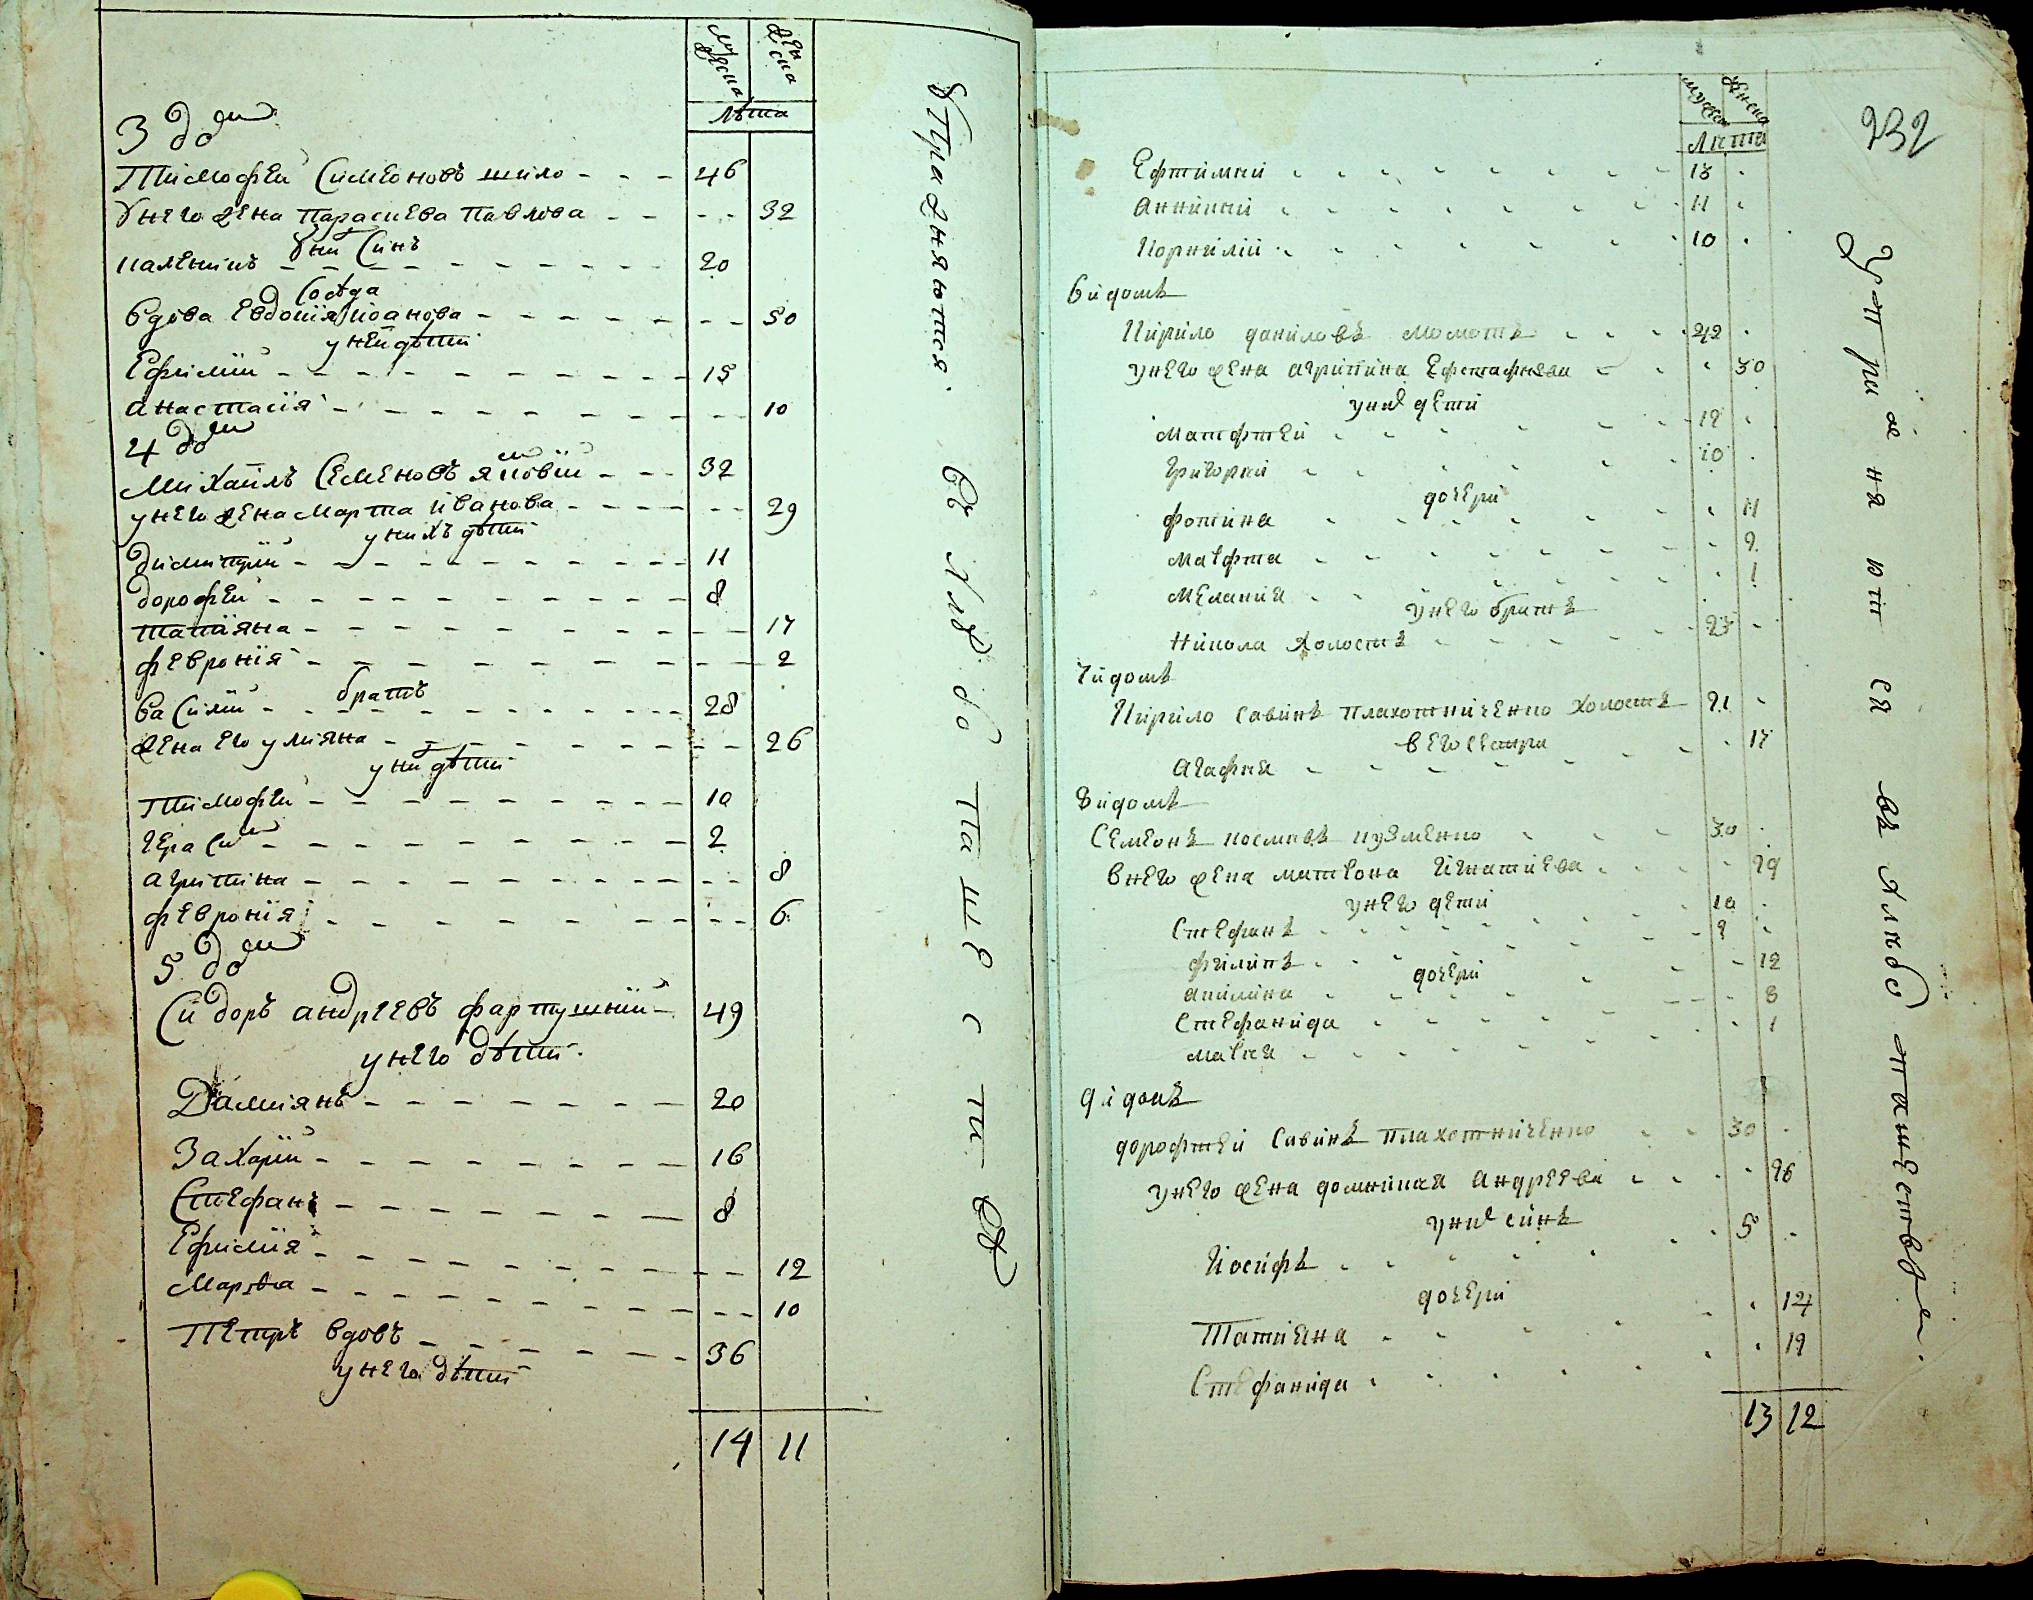 мужеска
женска
лѣта
3 домъ
Тимофей Симеоновъ шило 46
Унего жена Параскева Павлова 32
Уних Синъ
каленикъ 20
Сосѣда
Вдова Евдокия Иоанова 50
у неи дѣти
Ефимий 15
Анастасия 10
4 домъ
Михаилъ Семеновъ 32
у него жена Марта Иванова 29
у нихъ дѣти
Димитрий 11
дорофей 8
татияна 17
феврония 2
братъ
василий 28
жена его улияна 26
у них дѣти
Тимофей 10
герасим 2
агрипина 8
феврония 6
5 домъ
Сидоръ андреевъ фартушний 49
у него дѣти
Дамиянъ 20
Захарий 16
Стефанъ 8
Ефимия 12
Марѳа 10
Петръ вдовъ 36
у него дѣти
14 11
Упражняются в хлебопашествѣ
232
мужеска
женска
Лита
Ефтимий 13
Аникий 11
Корнилий 10
6й домъ
Кирило даниловъ момотъ 42
унего жена агрипина Ефстафиева 30
уних дети
Матфтей 12
Григорий 10
дочери
фотина 11
Марфта 9
Мелания 1
унего братъ
Никола холостъ 23
7й домъ
Кирило савинъ плахотниченко холостъ 21
в его сестри
Агафия 17
8й домъ
Семеонъ космивъ кузменко 30
в него жена матрона Игнатиева 29
унего дети
Стефанъ 10
филипъ 9
дочери
акилина 12
Стефанида 8
мавия 1
9й домъ
дорофтей Савинъ плахотниченко 30
унего жена домникия Андреева 26
уних синъ
Иосифъ 5
дочери
Татияна 14
Стефанида 19
13 12
упражняются въ хлѣбопашестве